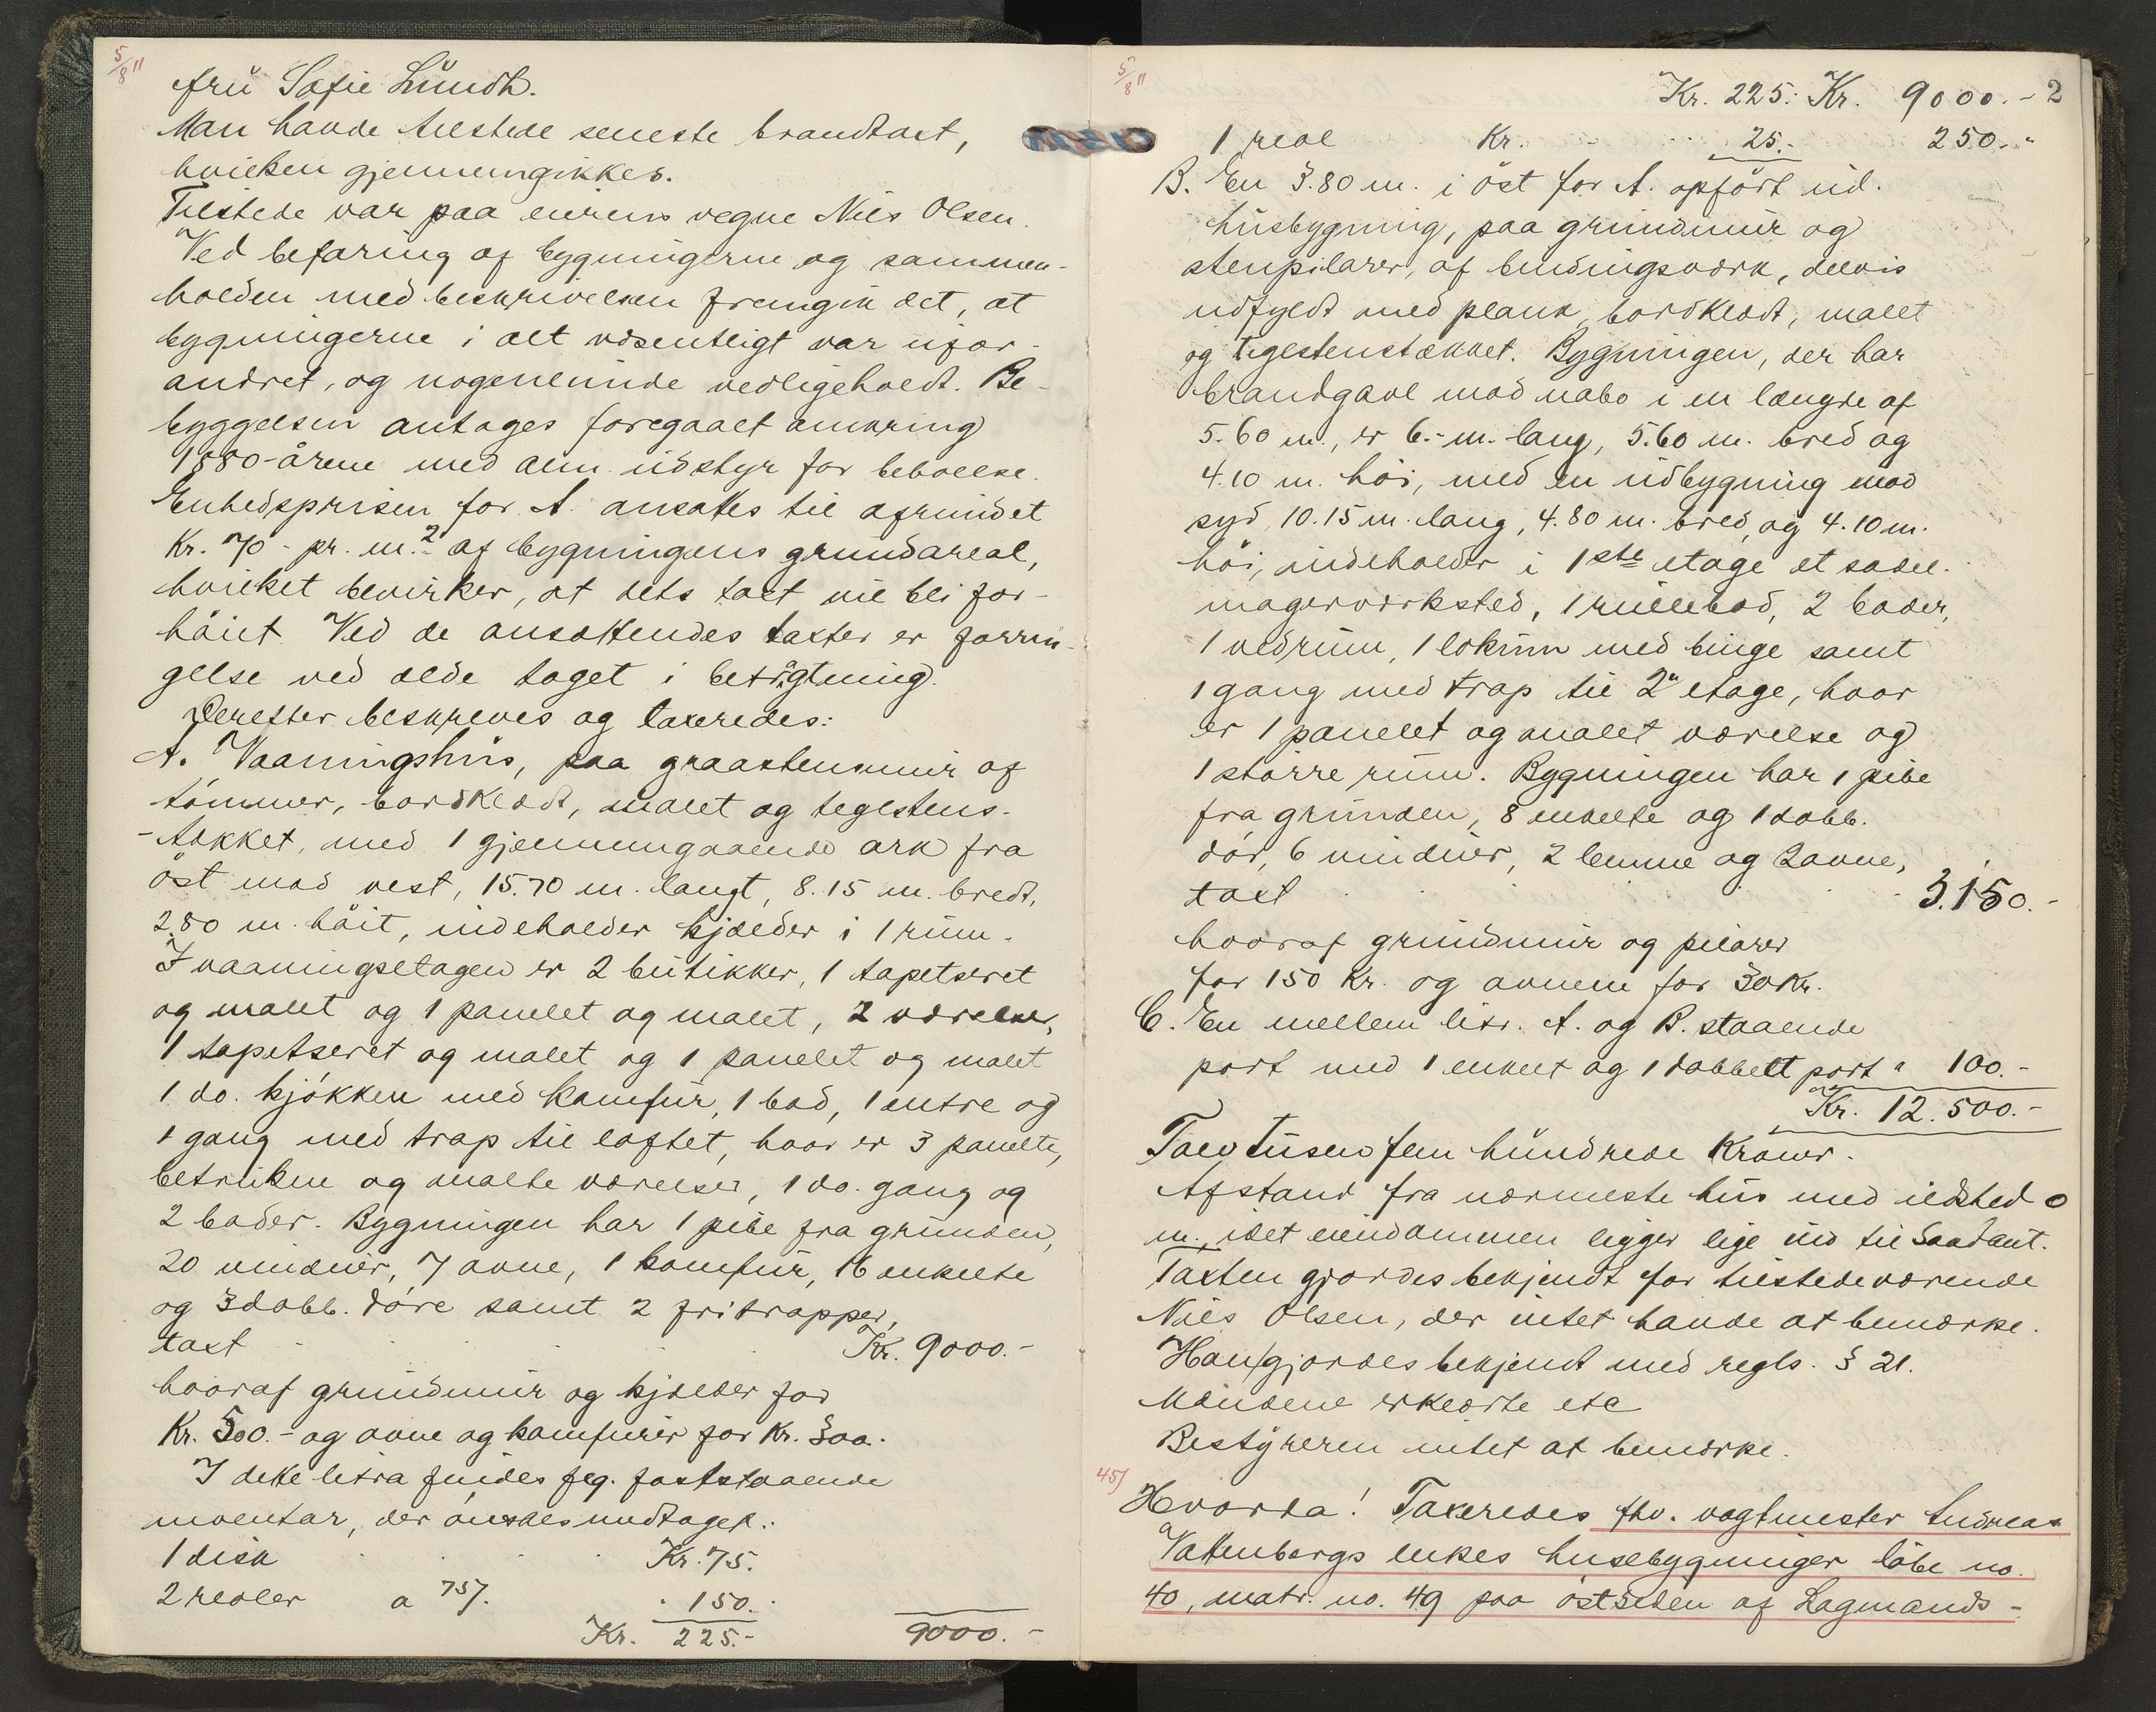 5/8 11
fru Sofie Lundh.
Man havde tilstede seneste brandtaxt,
hvilken gjennemgikkes.
Tilstede var paa eierens vegne Nils Olsen.
Ved befaring af bygningerne og sammen-
holden med beskrivelsen fremgik det, at
bygningerne i alt væsentligt var ufor-
andret, og nogenlunde vedligeholdt. Be-
byggelsen antages foregaaet omkring
1880-årene med alm. udstyr for beboelse.
Enhedsprisen for A. ansattes til afrundet
Kr. 70.- pr. m.² af bygningens grundareal,
hvilket bevirker, at dets taxt vil bli for-
höiet. Ved de ansættendes taxter er forrin-
gelse ved ælde taget i betragtning.
Derefter beskreves og taxeredes:
A. Vaaningshus, paa graastensmur af
tömmer, bordklædt, malet og teglstens-
-tækket, med 1 gjennemgaaende ark fra
öst mod vest, 15.70 m. langt, 8.15 m. bredt,
2.80 m. höit, indeholder kjælder i 1 rum.
I vaaningsetagen er 2 butikker, 1 tapetseret
og malet og 1 panelet og malet, 2 værelser,
1 tapetseret og malet og 1 panelet og malet
1 do. kjökken med komfur, 1 bod, 1 entre og
1 gang med trap til loftet, hvor er 3 panelte,
betrukne og malte værelser, 1 do. gang og
2 boder. Bygningen har 1 pibe fra grunden,
20 vinduer, 7 ovne, 1 komfur, 16 enkelte
og 3 dobb. döre samt 2 fritrapper,
taxt Kr. 9000.-
hvoraf grundmur og kjælder for
Kr. 500.- og ovne og komfurer for Kr. 300.
I dette litra findes flg. fastståaende
inventar, der önskes medtaget:
1 disk Kr. 75.
2 reoler a 75/. " 150.
Kr. 225.- 9000.-
5/8 11
Kr. 225: Kr. 9000.- 2
1 reol Kr. 25.- 250.-
B. En 3.80 m. i öst for A. opfört ud-
husbygning, paa grundmur og
stenpilarer, af bindingsværk, delvis
udfyldt med plank, bordklædt, malet
og teglstenstækket. Bygningen, der har
brandgavl mod nabo i en længde af
5.60 m., er 6.- m. lang, 5.60 m. bred og
4.10 m. höi, med en udbygning mod
syd, 10.15 m. lang, 4.80 m. bred, og 4.10 m.
höi, indeholder i 1ste etage et sadel-
magerværksted, 1 rullebod, 2 boder,
1 vedrum, 1 lokum med binge samt
1 gang med trap til 2" etage, hvor
er 1 panelet og malet værelse og
1 större rum. Bygningen har 1 pibe
fra grunden, 8 enkelte og 1 dobb.
dör, 6 vinduer, 2 lemme og 2 ovne,
taxt 3.150.-
hvoraf grundmur og pilarer
for 150 Kr. og ovnene for 30 Kr.
C. En mellem litr. A. og B. staaende
port med 1 enkelt og 1 dobbelt port " 100.-
Kr. 12.500.-
Tolv tusen fem hundrede Kroner.
Afstand fra nærmeste hus med ildsted 0
m., idet eiendommen ligger lige ind til saadant.
Taxten gjordes bekjendt for tilstedeværende
Nils Olsen, der intet havde at bemærke.
Han gjordes bekjendt med regls. § 21.
Mændene erklærte etc
Bestyreren intet at bemærke.
45/
Hvorda! Taxeredes fhv. vagtmester Andreas
Vattenbergs enkes husebygninger löbe no.
40, matr. no. 49 paa östsiden af Lagmands-